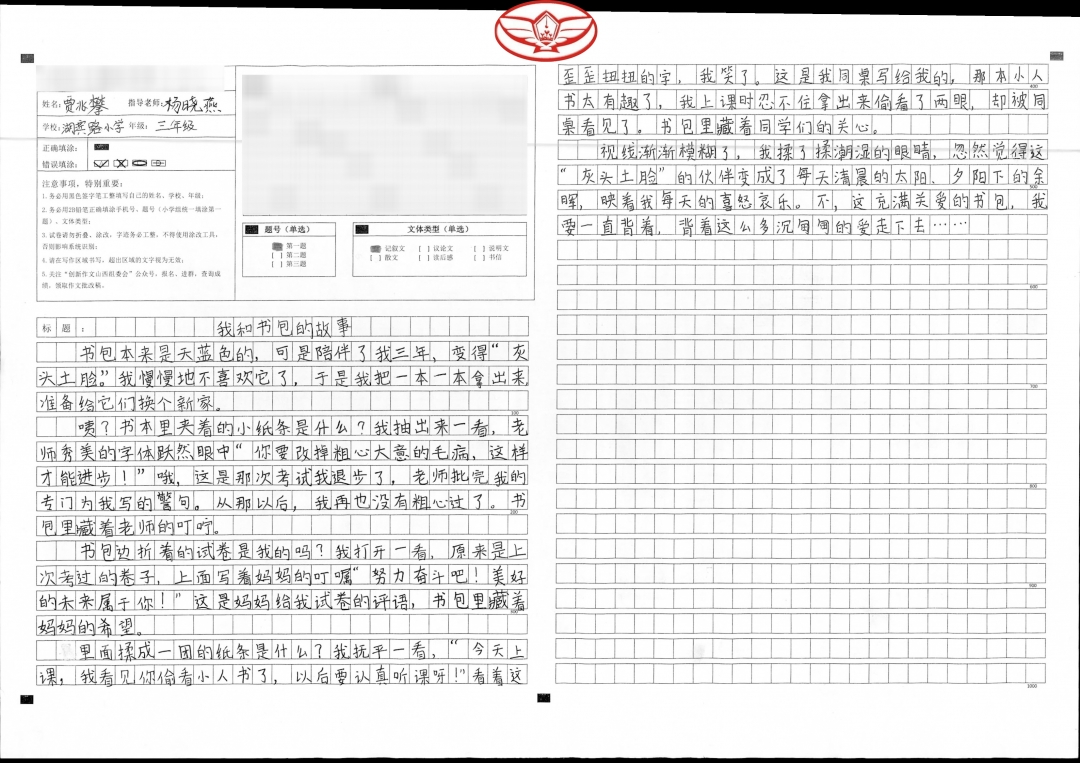 姓名: 贾兆攀 指导老师: 杨晓燕
学校: 小学 年级: 三年级
正确填涂:
错误填涂:
注意事项，特别重要:
1.务必用黑色签字笔工整填写自己的姓名、学校、年级;
2.务必用2B铅笔正确填涂手机号、题号（小学组统一填涂第一
题）、文体类型;
3.试卷请勿折叠、涂改，字迹务必工整，不得使用涂改工具，
否则影响系统识别;
4.请在写作区域书写，超出区域的文字视为无效;
5.关注“创新作文山西组委会”公众号，报名、进群、查询成
绩、领取作文批改稿。
题号（单选）
第一题
[ ] 第二题
[ ] 第三题
文体类型（单选）
记叙文 [ ] 议论文 [ ] 说明文
[ ] 散文 [ ] 读后感 [ ] 书信
标题: 我和书包的故事
书包本来是天蓝色的，可是陪伴了我三年，变得“灰
头土脸。”我慢慢地不喜欢它了，于是我把一本一本拿出来，
准备给它们换个新家。
100
咦？书本里夹着的小纸条是什么？我抽出来一看，老
师秀美的字体跃然眼中“你要改掉粗心大意的毛病，这样
才能进步！”哦，这是那次考试我退步了，老师批完我的
专门为我写的警句。从那以后，我再也没有粗心过了。书
200
包里藏着老师的叮咛。
书包边折着的试卷是我的吗？我打开一看，原来是上
次考过的卷子，上面写着妈妈的叮嘱“努力奋斗吧！美好
的未来属于你！”这是妈妈给我试卷的评语，书包里藏着
300
妈妈的希望。
里面揉成一团的纸条是什么？我抚平一看，“今天上
课，我看见你偷看小人书了，以后要认真听课呀！”看着这
歪歪扭扭的字，我笑了。这是我同桌写给我的，那本小人
400
书太有趣了，我上课时忍不住拿出来偷看了两眼，却被同
桌看见了。书包里藏着同学们的关心。
视线渐渐模糊了，我揉了揉潮湿的眼睛，忽然觉得这
“灰头土脸”的伙伴变成了每天清晨的太阳、夕阳下的余
500
晖，映着我每天的喜怒哀乐。不，这充满关爱的书包，我
要一直背着，背着这么多沉甸甸的爱走下去……
600
700
800
900
1000